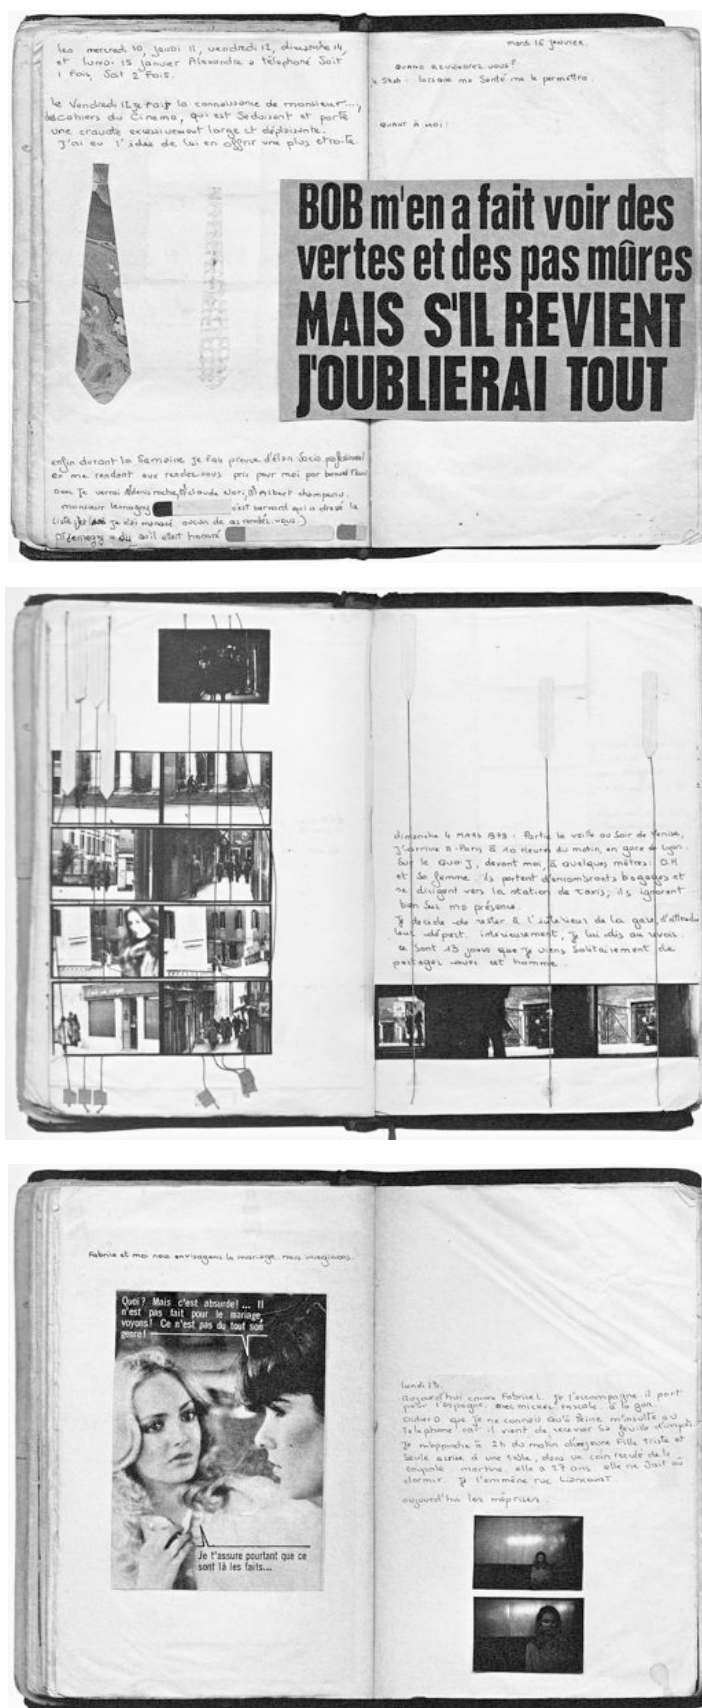 les mercredi 10, jeudi 11, vendredi 12, dimanche 14,
et lundi 15 janvier Alexandre a téléphoné Soit
1 Fois, Soit 2 Fois.
le Vendredi 12 je Fais la connaissance de monsieur...,
des Cahiers du Cinema, qui est Séduisant et porte
une cravate excessivement large et déplaisante.
J'ai eu l'idée de lui en offrir une plus etroite.
enfin durant la Semaine je Fais preuve d'élan Socio professionnel
en me rendant aux rendez-vous pris pour moi par bernard
Donc Je verrai denis roche, claude Nori, Albert champeau.
monsieur lemagny c'est bernard qui a dressé la
liste, je n'ai manqué aucun de ces rendez-vous.)
Mr lemagny a dit qu'il était honoré
mardi 16 janvier.
QUAND REVIENDREZ VOUS?
le Shah : lorsque ma Santé me le permettra.
QUANT À MOI:
BOB m'en a fait voir des
vertes et des pas mûres
MAIS S'IL REVIENT
J'OUBLIERAI TOUT
dimanche 4 mars 1979 : Partie la veille au Soir de Venise,
J'arrive à Paris à 10 heures du matin, en gare de Lyon.
Sur le Quai J, devant moi, à quelques mètres: O.H
et Sa femme. ils portent d'encombrants bagages et
se dirigent vers la station de taxis; ils ignorent
bien Sur ma présence.
Je décide de rester à l'intérieur de la gare, d'attendre
leur départ. intérieurement, Je lui dis au revoir.
ce Sont 13 jours que Je viens Solitairement de
partager avec cet homme.
Fabrice et moi nous envisageons le mariage. nous imaginons.
Quoi? Mais c'est absurde! ... Il
n'est pas fait pour le mariage,
voyons! Ce n'est pas du tout son
genre!
Je t'assure pourtant que ce
sont là les faits...
lundi 13.
aujourd'hui encore Fabrice L. Je l'accompagne il part
pour l'espagne avec michel pascale. à la gare.
Didier D. que je ne connais Qu'à Peine m'insulte au
Telephone car il vient de recevoir Sa feuille d'impots.
Je m'approche à 2h du matin d'une jeune Fille triste et
Seule assise à une table, dans un coin reculé de la
coupole martine. elle a 27 ans. elle ne Sait où
dormir. Je l'emmène rue Liancourt
aujourd'hui les méprises